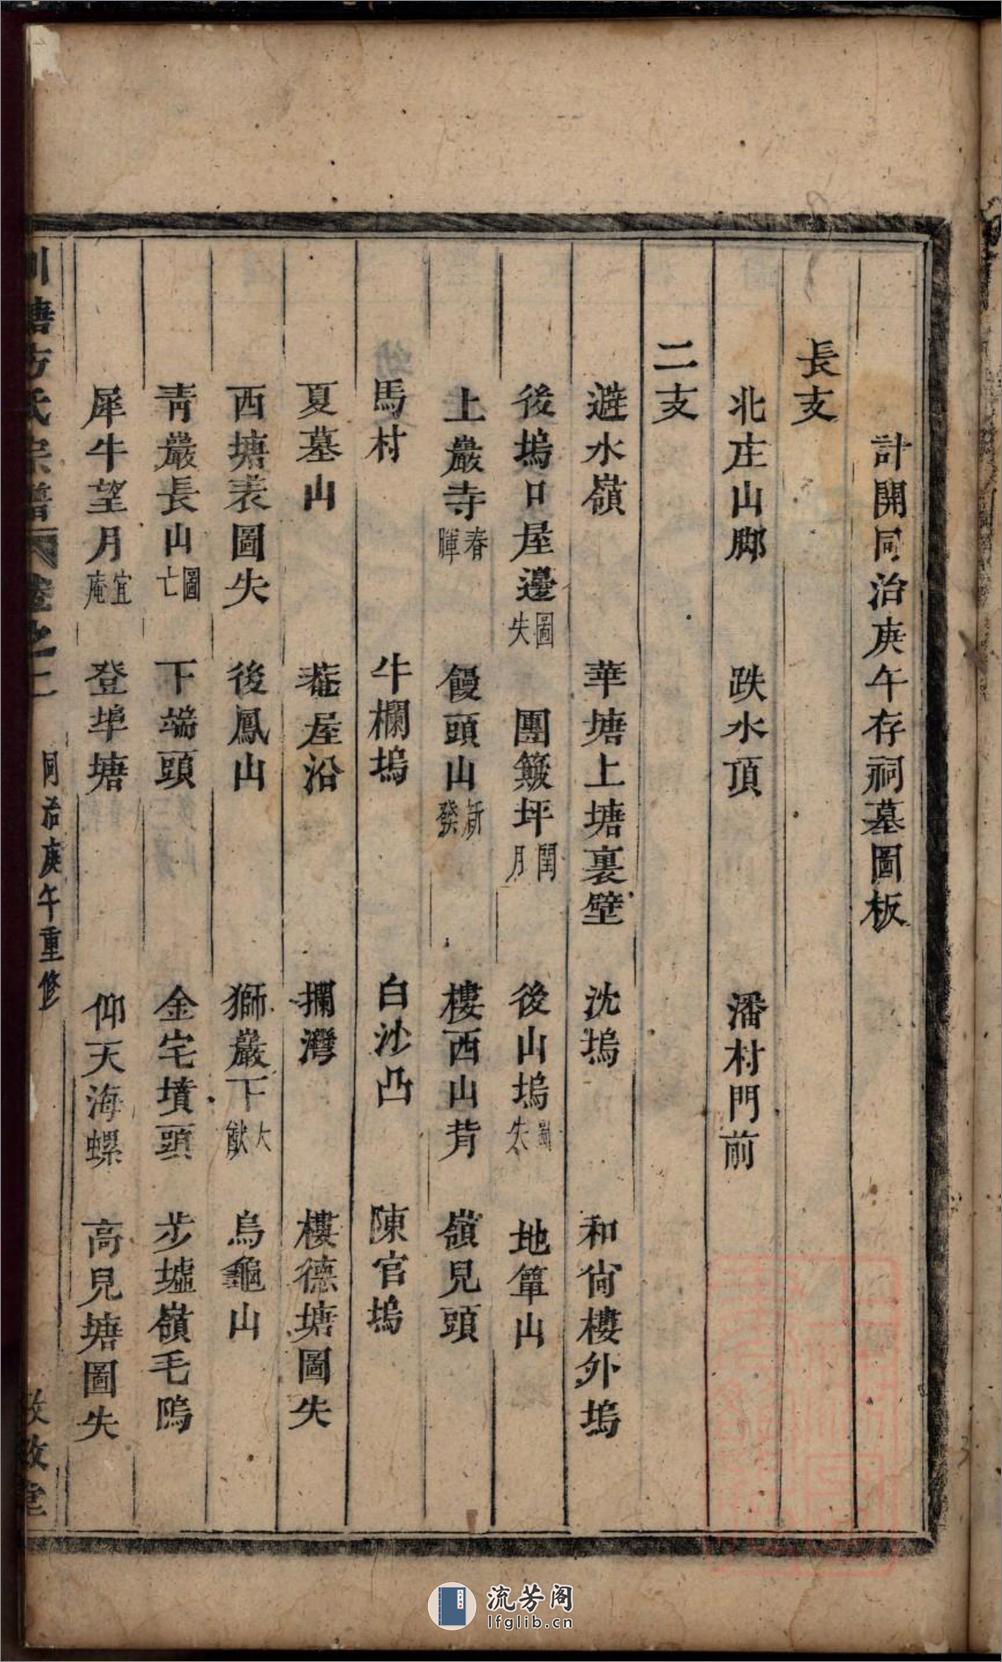 計開同治庚午存祠墓圖板
長支
北庄山脚 跌水頂 潘村門前
二支
遊水嶺 華塘上塘裏壁 沈塢 和尙樓外塢
後塢口屋邊圖失 團簸坪閏月 後山塢圖失 地簞山
上巖寺春暉 饅頭山新發 樓西山背 嶺見頭
馬村 牛欄塢 白沙凸 陳官塢
夏墓山 菴屋沿 攔灣 樓德塘圖失
西塘表圖失 後鳳山 獅巖下大猷 烏龜山
靑巖長山圖亡 下端頭 金宅墳頭 步墟嶺毛塢
犀牛望月宜庵 登埠塘 仰天海螺 高見塘圖失
塘方氏宗譜 卷之二 同治庚午重修 敘堂
流芳阁
lfglib.cn